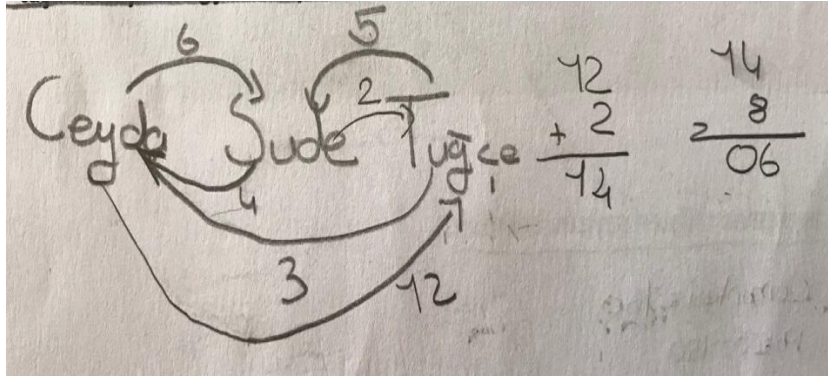 6
5
2
Ceyda Sude Tuğçe
4
3
12
12
+ 2
14
14
- 8
06